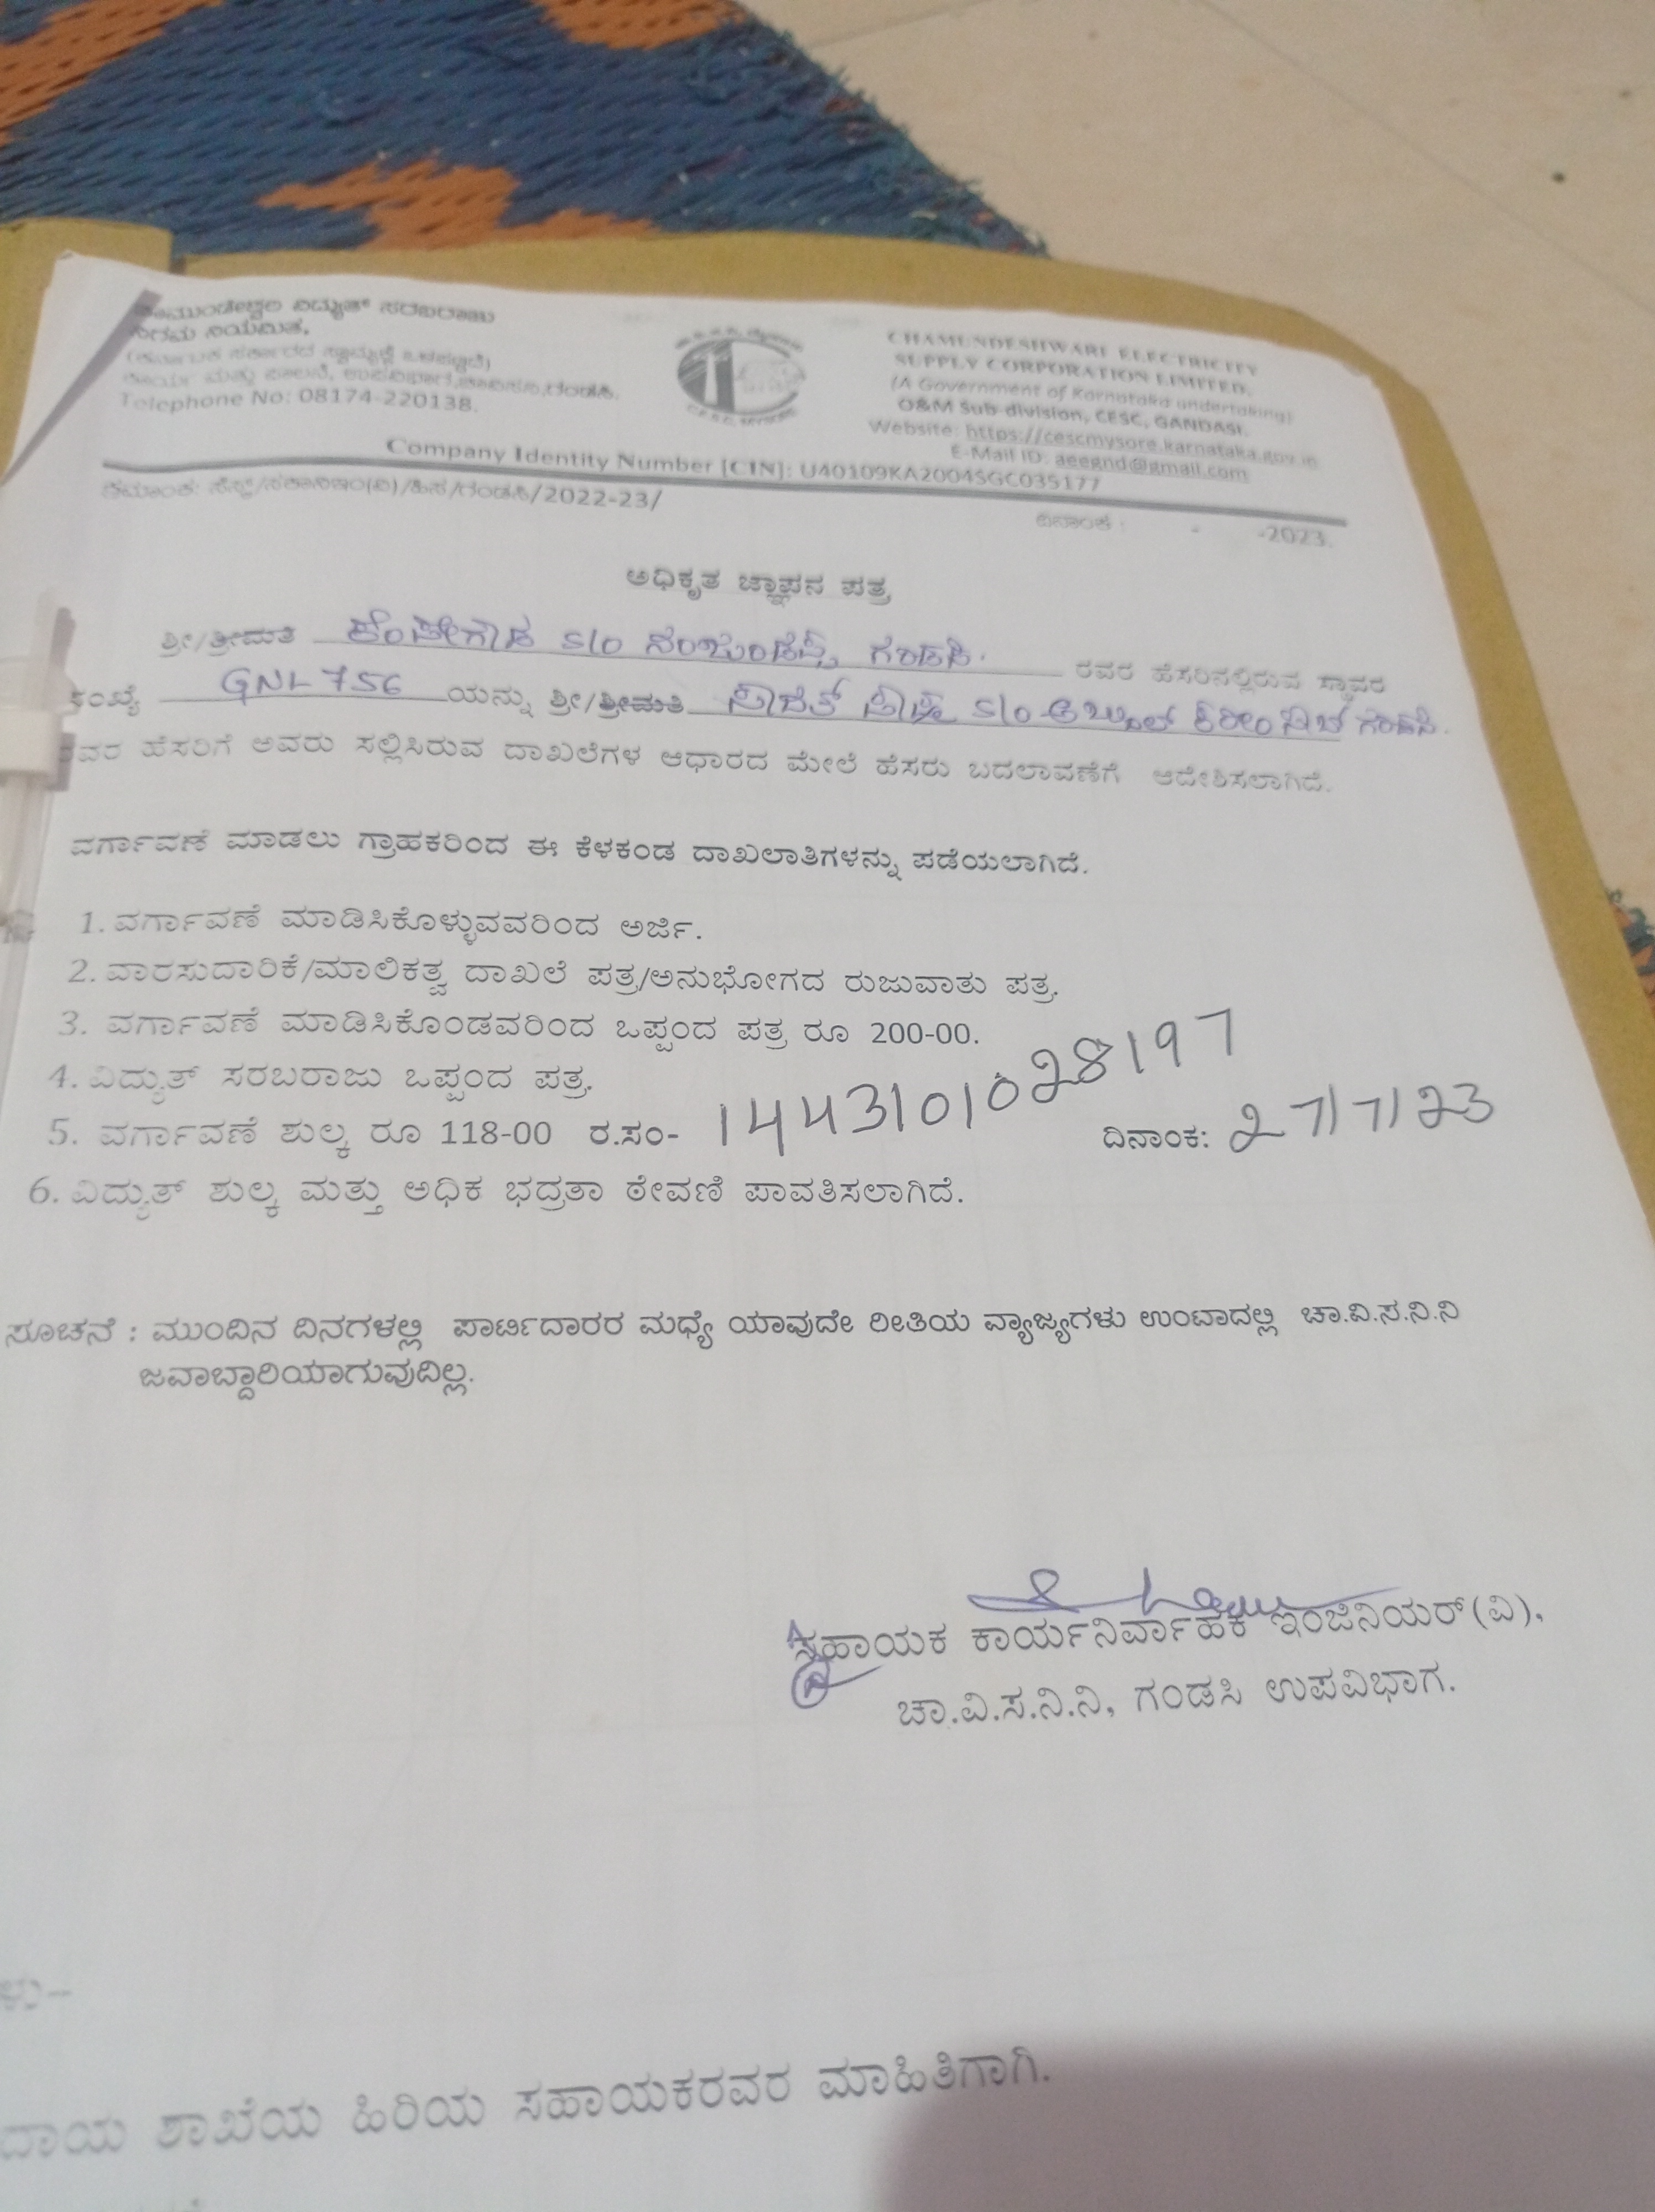 ಚಾಮುಂಡೇಶ್ವರಿ ವಿದ್ಯುತ್ ಸರಬರಾಜು
ನಿಗಮ ನಿಯಮಿತ,
(ಕರ್ನಾಟಕ ಸರ್ಕಾರದ ಸ್ವಾಮ್ಯಕ್ಕೆ ಒಳಪಟ್ಟಿದೆ)
ಕಾರ್ಯ ಮತ್ತು ಪಾಲನೆ, ಉಪವಿಭಾಗ, ಚಾವಿಸನಿನಿ, ಗಂಡಸಿ.
Telephone No: 08174-220138.
CHAMUNDESHWARI ELECTRICITY
SUPPLY CORPORATION LIMITED.
(A Government of Karnataka undertaking)
O&M Sub-division, CESC, GANDASI.
Website: https://cescmysore.karnataka.gov.in
E-Mail ID: aeegnd@gmail.com
Company Identity Number [CIN]: U40109KA2004SGC035177
ಕ್ರಮಾಂಕ: /ಗಂಡಸಿ/2022-23/
ದಿನಾಂಕ : - -2023.
ಅಧಿಕೃತ ಜ್ಞಾಪನ ಪತ್ರ
ಶ್ರೀ/ಶ್ರೀಮತಿ ಕೆಂಪೇಗೌಡ S/o ನಂಜುಂಡಪ್ಪ ಗಂಡಸಿ. ರವರ ಹೆಸರಿನಲ್ಲಿರುವ ಸ್ಥಾವರ
ಸಂಖ್ಯೆ GNL 756 ಯನ್ನು ಶ್ರೀ/ಶ್ರೀಮತಿ S/o ಗಂಡಸಿ.
ರವರ ಹೆಸರಿಗೆ ಅವರು ಸಲ್ಲಿಸಿರುವ ದಾಖಲೆಗಳ ಆಧಾರದ ಮೇಲೆ ಹೆಸರು ಬದಲಾವಣೆಗೆ ಆದೇಶಿಸಲಾಗಿದೆ.
ವರ್ಗಾವಣೆ ಮಾಡಲು ಗ್ರಾಹಕರಿಂದ ಈ ಕೆಳಕಂಡ ದಾಖಲಾತಿಗಳನ್ನು ಪಡೆಯಲಾಗಿದೆ.
1. ವರ್ಗಾವಣೆ ಮಾಡಿಸಿಕೊಳ್ಳುವವರಿಂದ ಅರ್ಜಿ.
2. ವಾರಸುದಾರಿಕೆ/ಮಾಲಿಕತ್ವ ದಾಖಲೆ ಪತ್ರ/ಅನುಭೋಗದ ರುಜುವಾತು ಪತ್ರ.
3. ವರ್ಗಾವಣೆ ಮಾಡಿಸಿಕೊಂಡವರಿಂದ ಒಪ್ಪಂದ ಪತ್ರ ರೂ 200-00.
4. ವಿದ್ಯುತ್ ಸರಬರಾಜು ಒಪ್ಪಂದ ಪತ್ರ.
5. ವರ್ಗಾವಣೆ ಶುಲ್ಕ ರೂ 118-00 ರ.ಸಂ- 1443101028197 ದಿನಾಂಕ: 27/7/23
6. ವಿದ್ಯುತ್ ಶುಲ್ಕ ಮತ್ತು ಅಧಿಕ ಭದ್ರತಾ ಠೇವಣಿ ಪಾವತಿಸಲಾಗಿದೆ.
ಸೂಚನೆ : ಮುಂದಿನ ದಿನಗಳಲ್ಲಿ ಪಾರ್ಟಿದಾರರ ಮಧ್ಯೆ ಯಾವುದೇ ರೀತಿಯ ವ್ಯಾಜ್ಯಗಳು ಉಂಟಾದಲ್ಲಿ ಚಾ.ವಿ.ಸ.ನಿ.ನಿ
ಜವಾಬ್ದಾರಿಯಾಗುವುದಿಲ್ಲ.
ಸಹಾಯಕ ಕಾರ್ಯನಿರ್ವಾಹಕ ಇಂಜಿನಿಯರ್(ವಿ),
ಚಾ.ವಿ.ಸ.ನಿ.ನಿ, ಗಂಡಸಿ ಉಪವಿಭಾಗ.
ಳು-
ದಾಯ ಶಾಖೆಯ ಹಿರಿಯ ಸಹಾಯಕರವರ ಮಾಹಿತಿಗಾಗಿ.